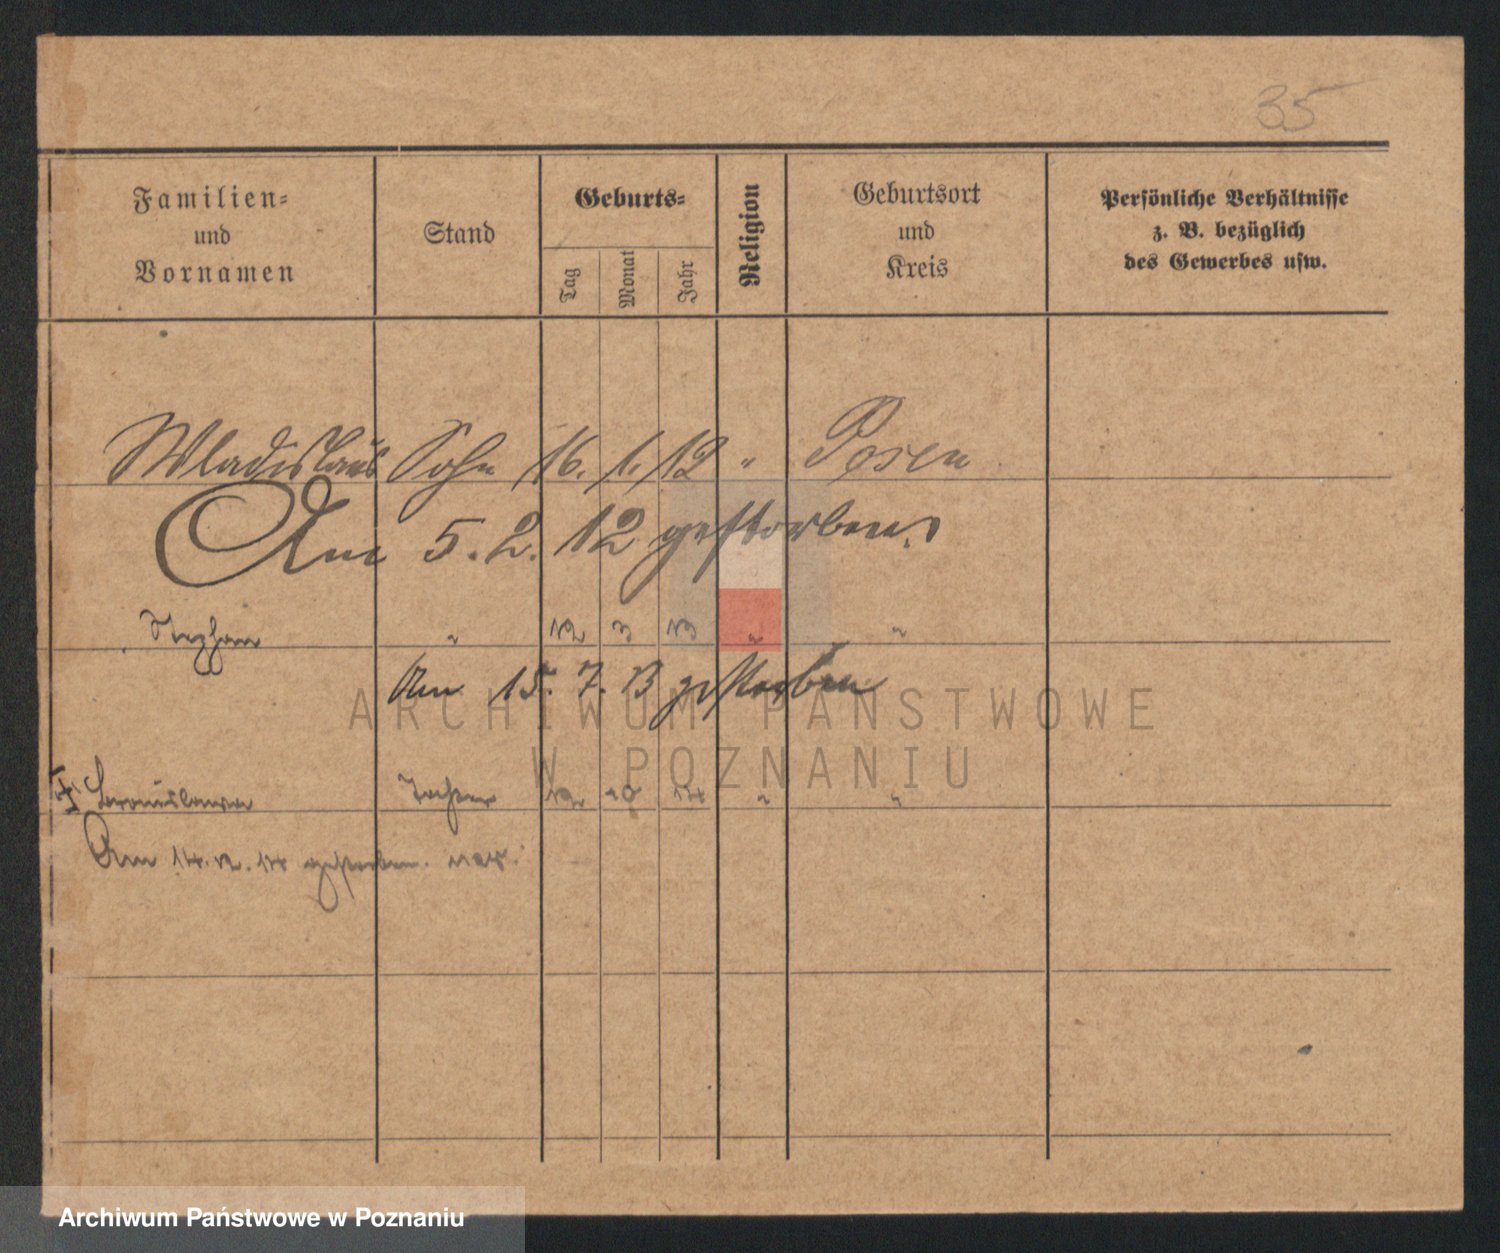 35
Familien-
und
Vornamen
Stand
Geburts-
Tag
Monat
Jahr
Religion
Geburtsort
und
Kreis
Persönliche Verhältnisse
z. B. bezüglich
des Gewerbes usw.
Wladislaus Sohn 16. 1. 12 " Posen
Am 5. 2. 12 gestorben.
Stephan " 12 3 13 " "
Am 15. 7. 13 gestorben
ARCHIWUM PAŃSTWOWE
W POZNANIU
Tochter 12 14 " "
Am 14. 12. 14 gestorben.
Archiwum Państwowe w Poznaniu